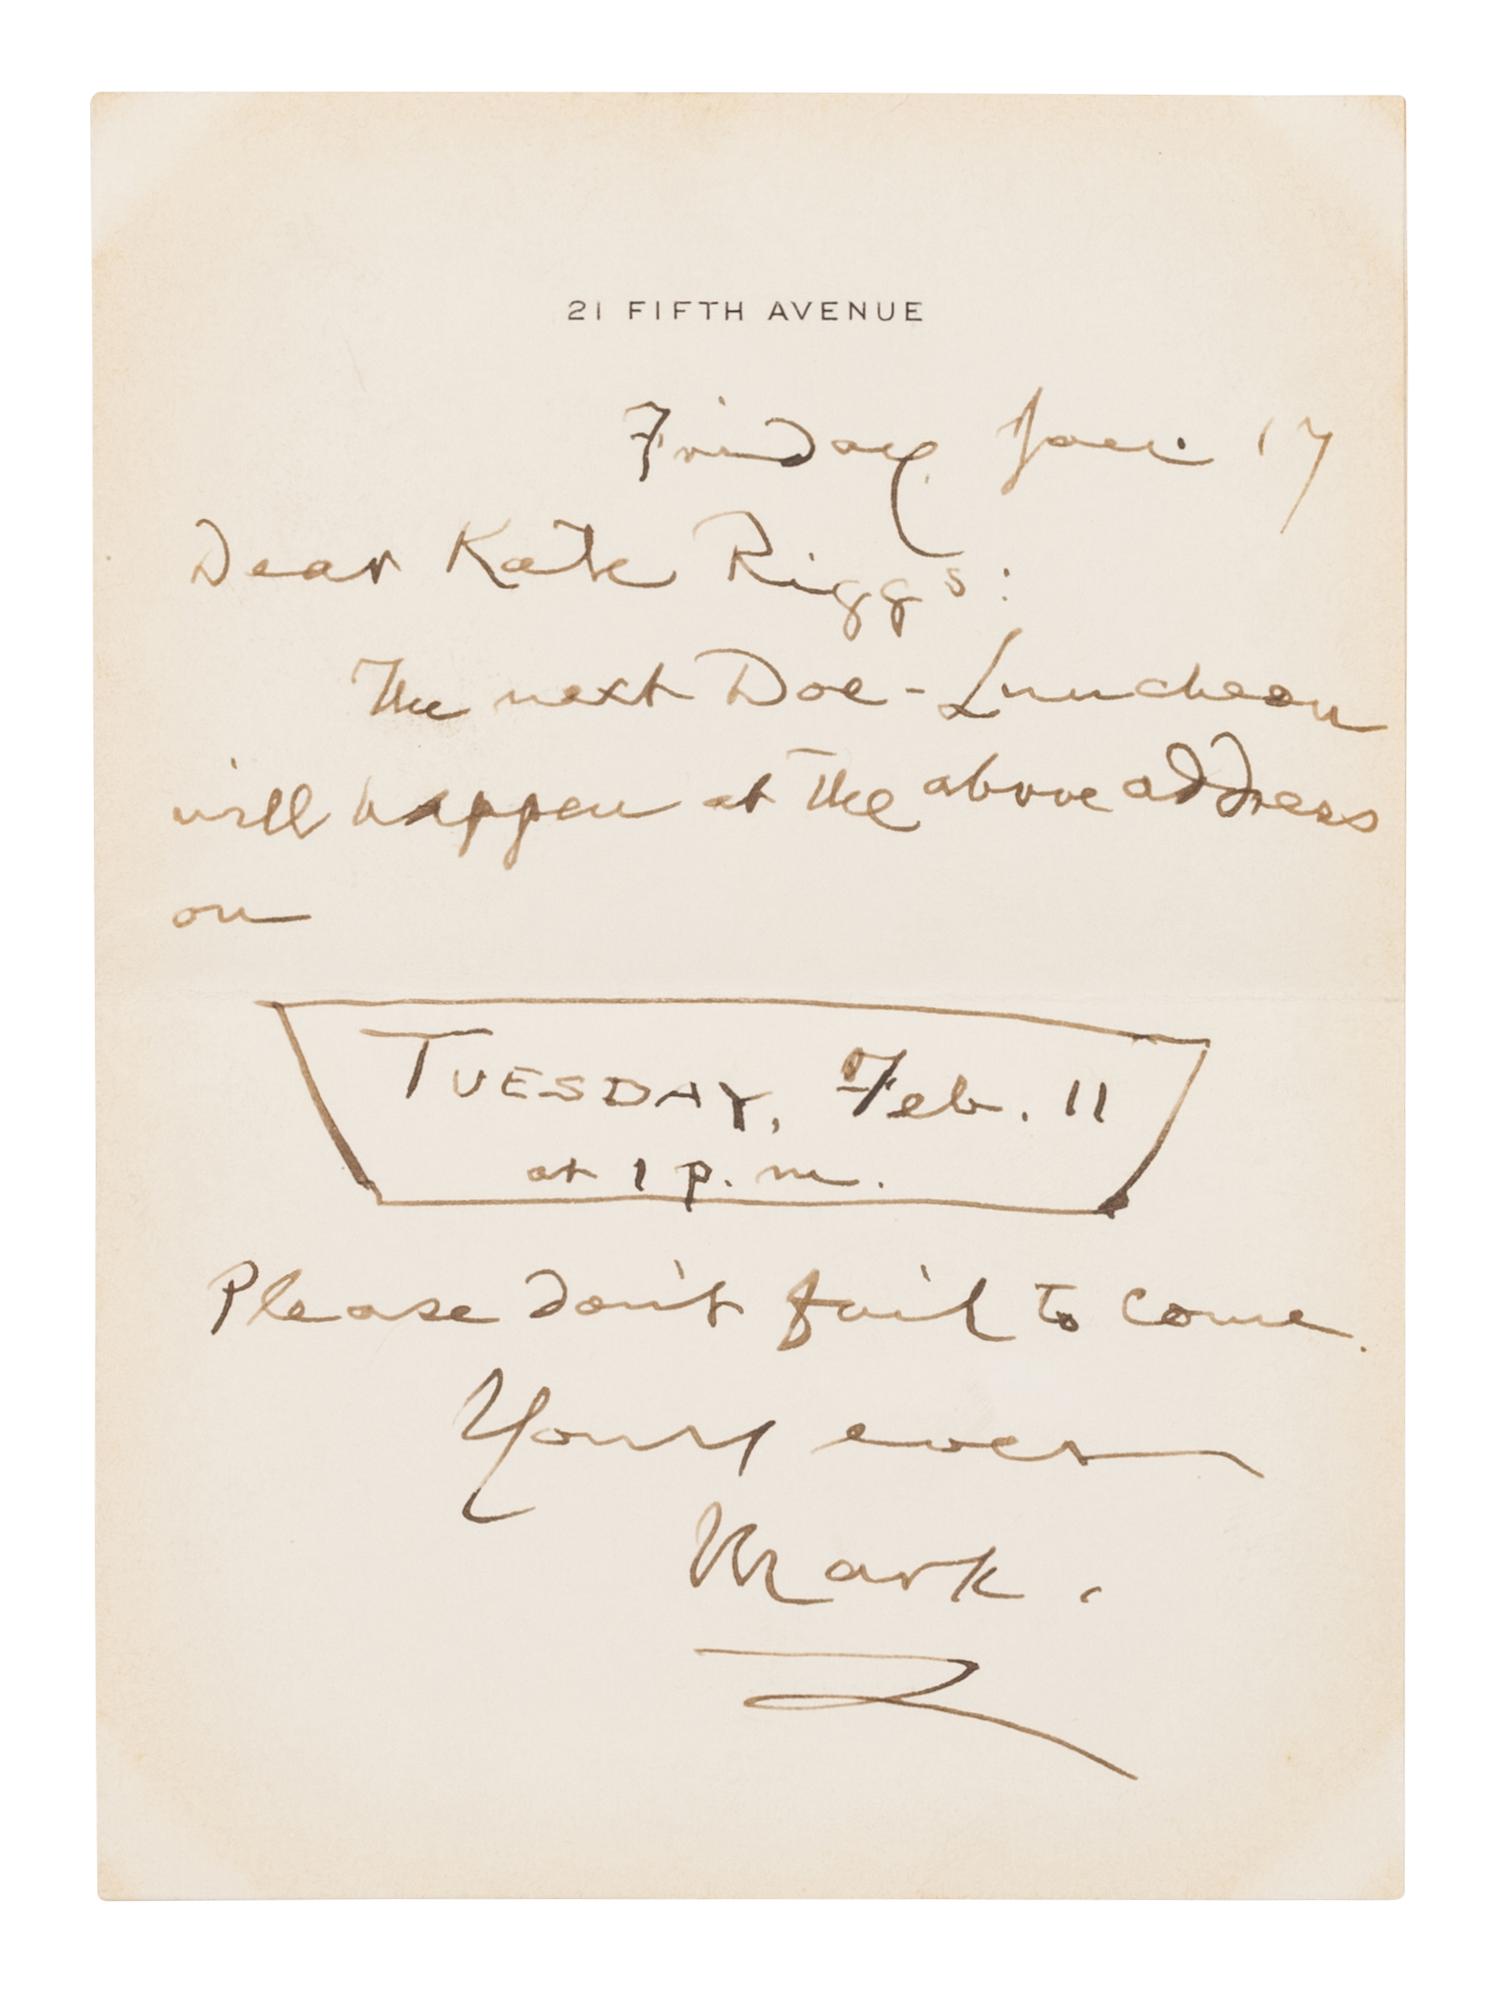 21 FIFTH AVENUE
Friday Jan. 17
Dear Kate Riggs:
The next Doe-Luncheon
will happen at the above address
on
TUESDAY, Feb. 11
at 1 p.m.
Please don't fail to come.
Yours ever
Mark.